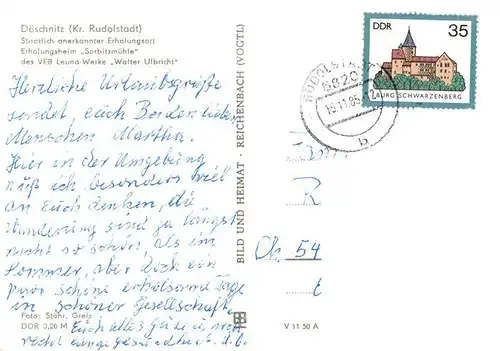 Döschnitz (Kr. Rudolstadt)
Staatlich anerkannter Erholungsort
Erholungsheim „Sorbitzmühle"
des VEB Leuna-Werke „Walter Ulbricht"
Herzliche Urlaubsgrüße
sendet, euch Beiden lieben
Menschen Martha.
Hier in der Umgebung
muß ich besonders viel
an Euch denken, die
Wanderung sind zu längst
nicht so schön als im
Sommer, aber doch ein
paar schöne erholsame Tage
in schöner Gesellschaft.
Foto: Stöhr, Greiz
DDR 0,20 M
Euch alles Gute u. noch
recht lange Gesundheit.
BILD UND HEIMAT · REICHENBACH (VOGTL)
DDR 35
BURG SCHWARZENBERG
RUDOLSTADT
6820
15.11.85-12
b
Fam.
R
Ch. 54
E
V 11 50 A